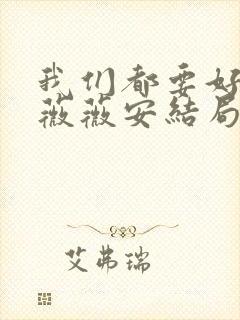 我们都要好
薇薇安结局
艾弗瑞